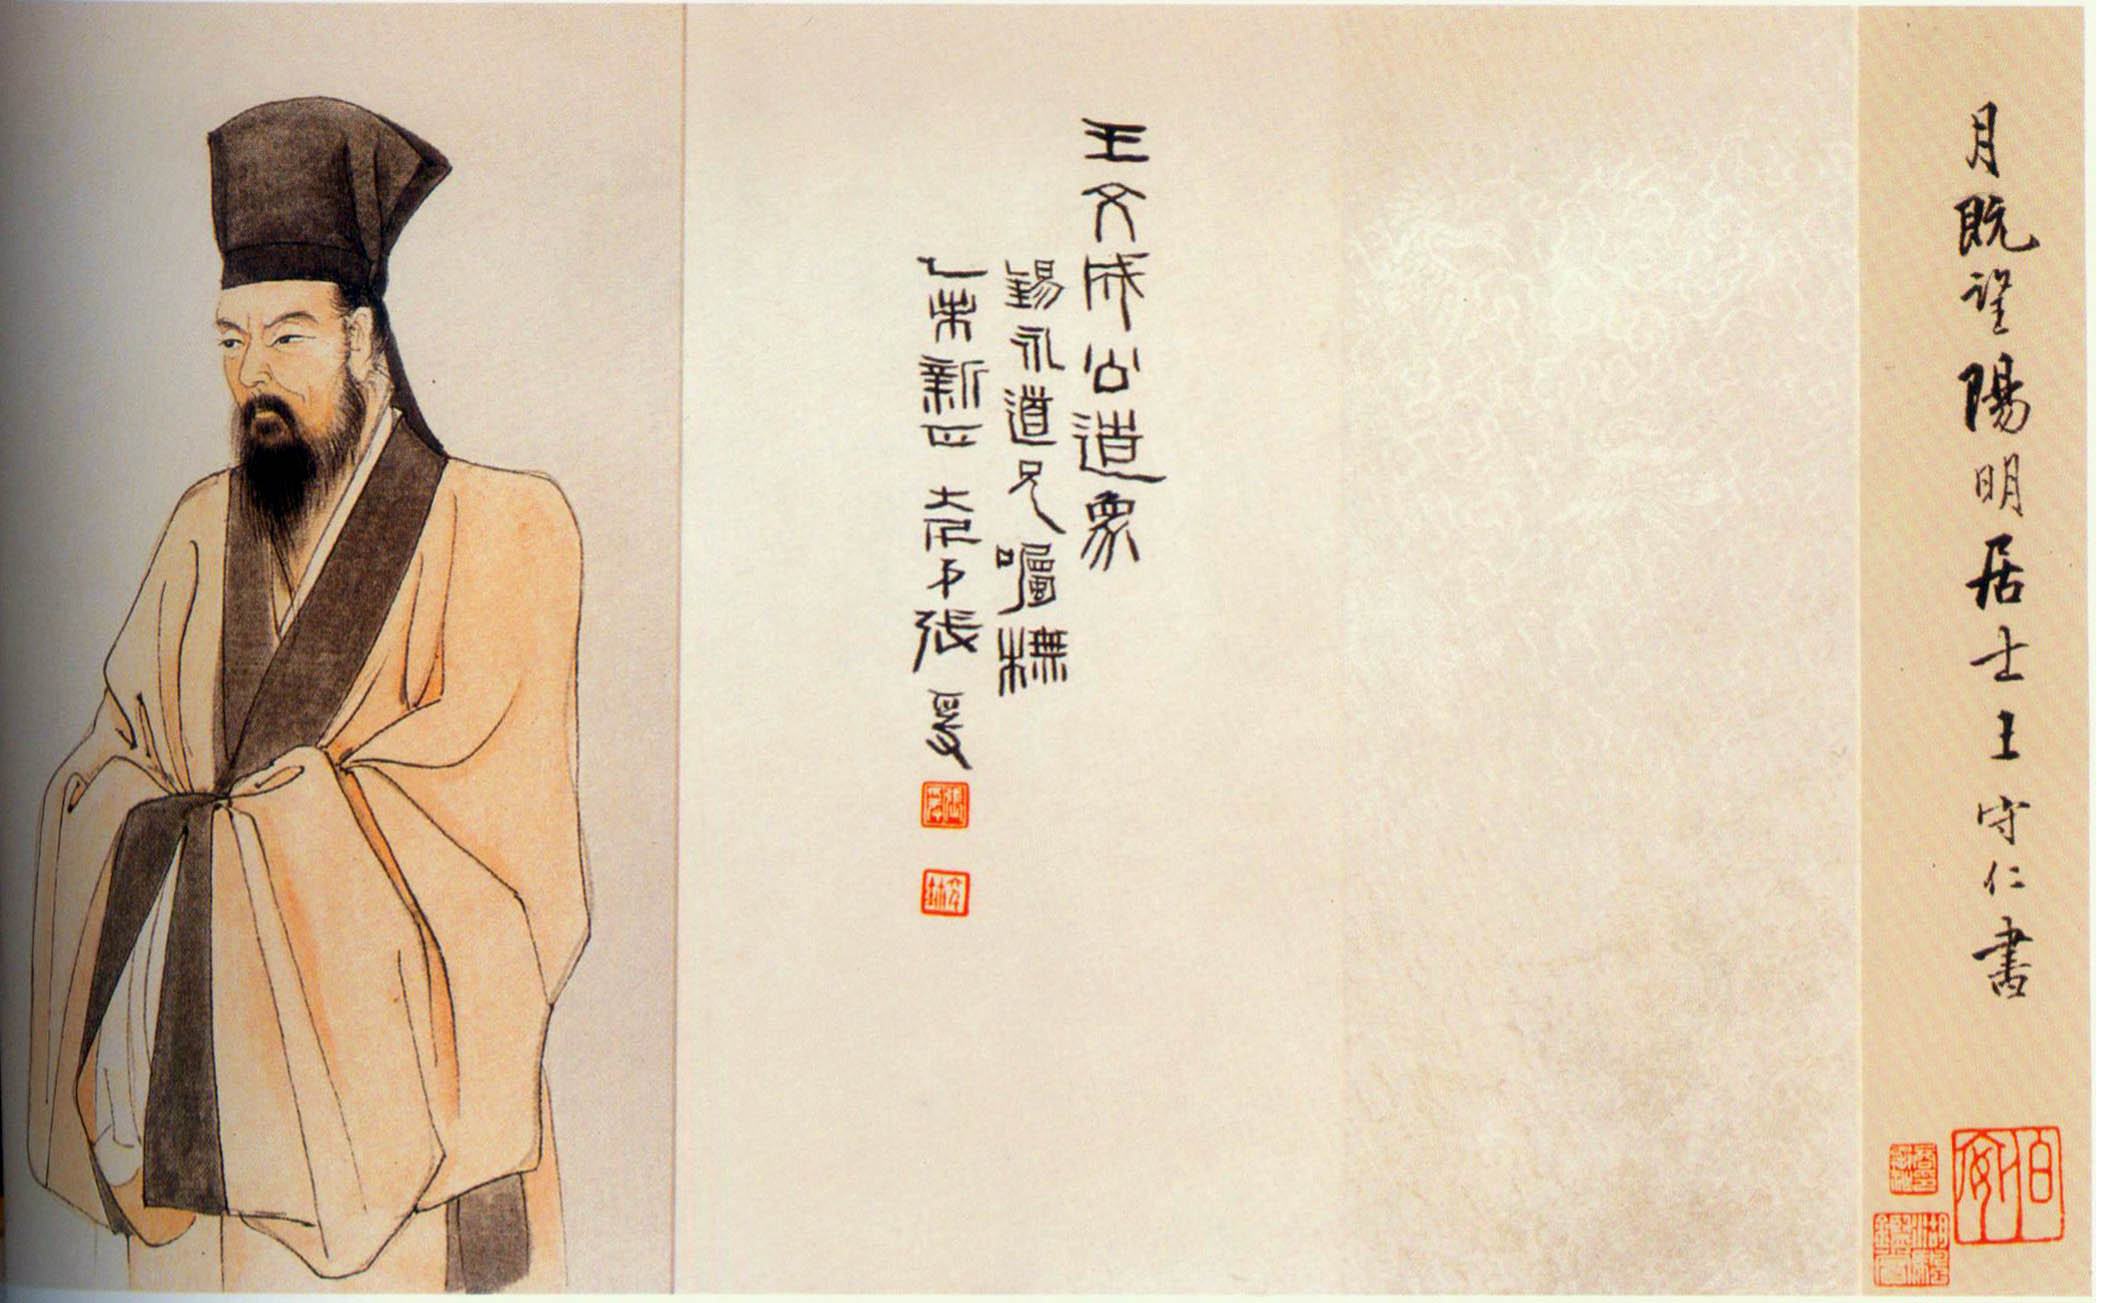 月既望陽明居士王守仁書
伯安
王文成公造象
錫永道兄囑橅
新正大張爰